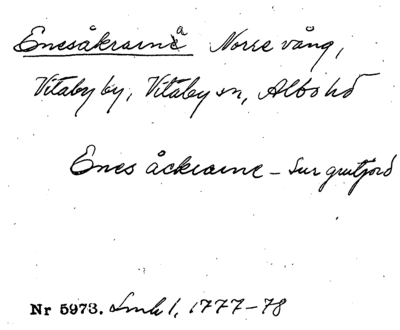 Enesåkrarna Norre vång,
Vitaby by, Vitaby sn, Albo hd
Enes åckrarne - Sur grutjord
Nr 5973. Lmk 1, 1777-78